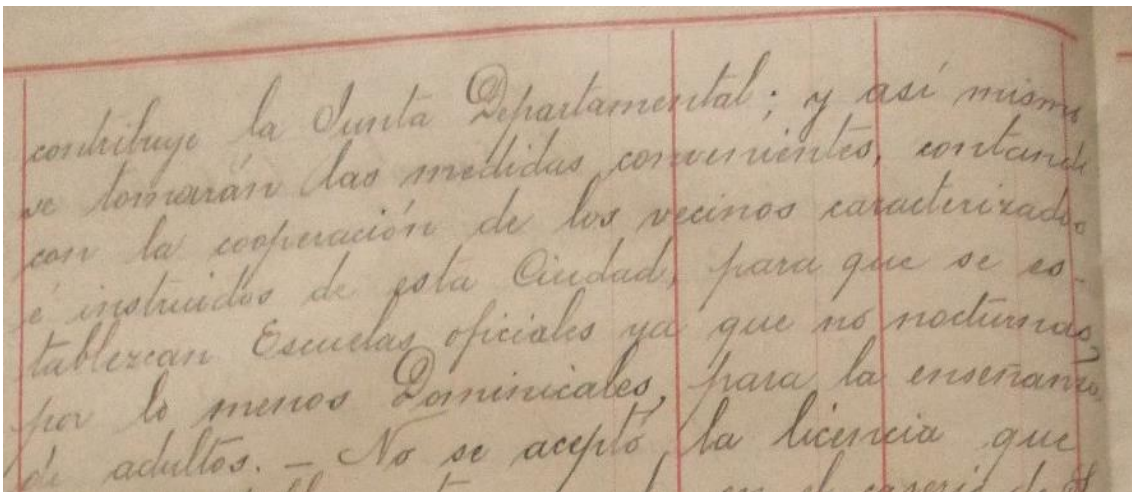 contribuye la Junta Departamental; y así mismo
se tomarán las medidas convenientes, contando
con la cooperación de los vecinos caracterizados
é instruidos de esta Ciudad, para que se es-
tablezcan Escuelas oficiales ya que no nocturnas,
por lo menos Dominicales, para la enseñanza
de adultos. – No se aceptó la licencia que
en el caserío de